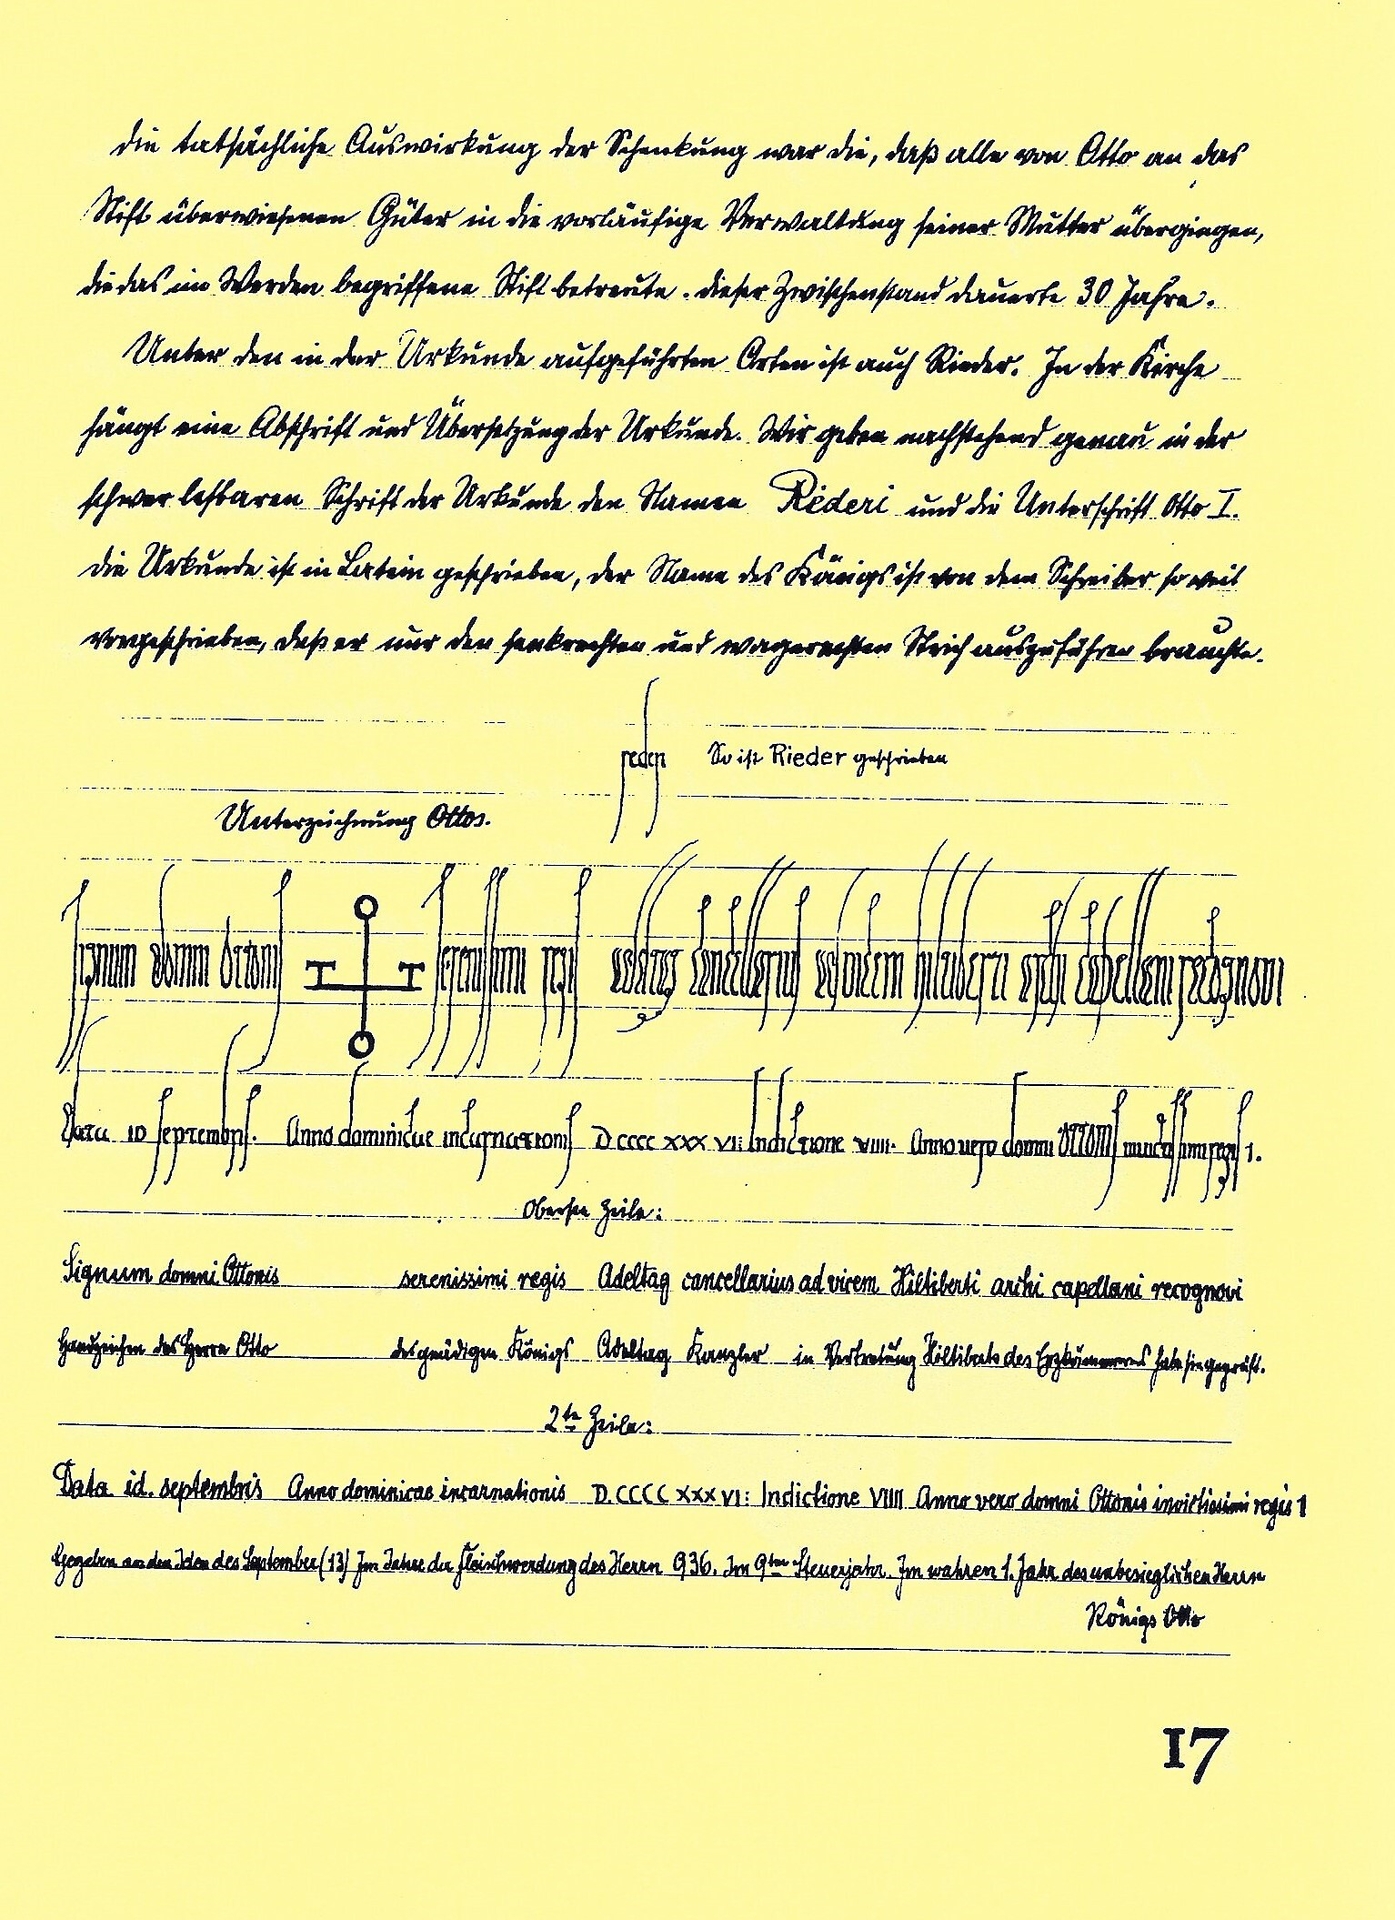 Die tatsächliche Auswirkung der Schenkung war die, daß alle von Otto an das
Stift überwiesenen Güter in die vorläufige Verwaltung seiner Mutter übergingen,
die das im Werden begriffene Stift betreute. Dieser Zwischenstand dauerte 30 Jahre.
Unter den in der Urkunde aufgeführten Orten ist auch Rieder. In der Kirche
hängt eine Abschrift und Übersetzung der Urkunde. Wir geben nachstehend genau in der
schwer lesbaren Schrift der Urkunde den Namen Rederi und die Unterschrift Otto I.
Die Urkunde ist in Latein geschrieben, der Name des Königs ist von dem Schreiber so weit
vorgeschrieben, daß er nur den senkrechten und wagerechten Strich auszuführen brauchte.
So ist Rieder geschrieben
Unterzeichnung Ottos.
signum domni ottonis serenissimi regis adaltag cancellarius advicem hiltiberti archi capellani recognovi
Data id septembris. Anno dominicae incarnationis D.CCCC XXX VI: Indictione VIIII. Anno vero domni ottonis invictissimi regis 1.
Oberste Zeile:
Signum domni Ottonis serenissimi regis Adeltag cancellarius ad vicem Hiltiberti archi capellani recognovi
Handzeichen des Herrn Otto des gnädigen Königs Adeltag Kanzler in Vertretung Hiltiberts des Erzkämmerers habe sie geprüft.
2te Zeile:
Data id. septembris Anno dominicae incarnationis D.CCCC XXX VI: Indictione VIIII Anno vero domni Ottonis invictissimi regis 1
Gegeben an den Iden des September (13) Im Jahre der Fleischwerdung des Herrn 936. Im 9ten Steuerjahr. Im wahren 1. Jahr des unbesieglichen Herrn
Königs Otto
17